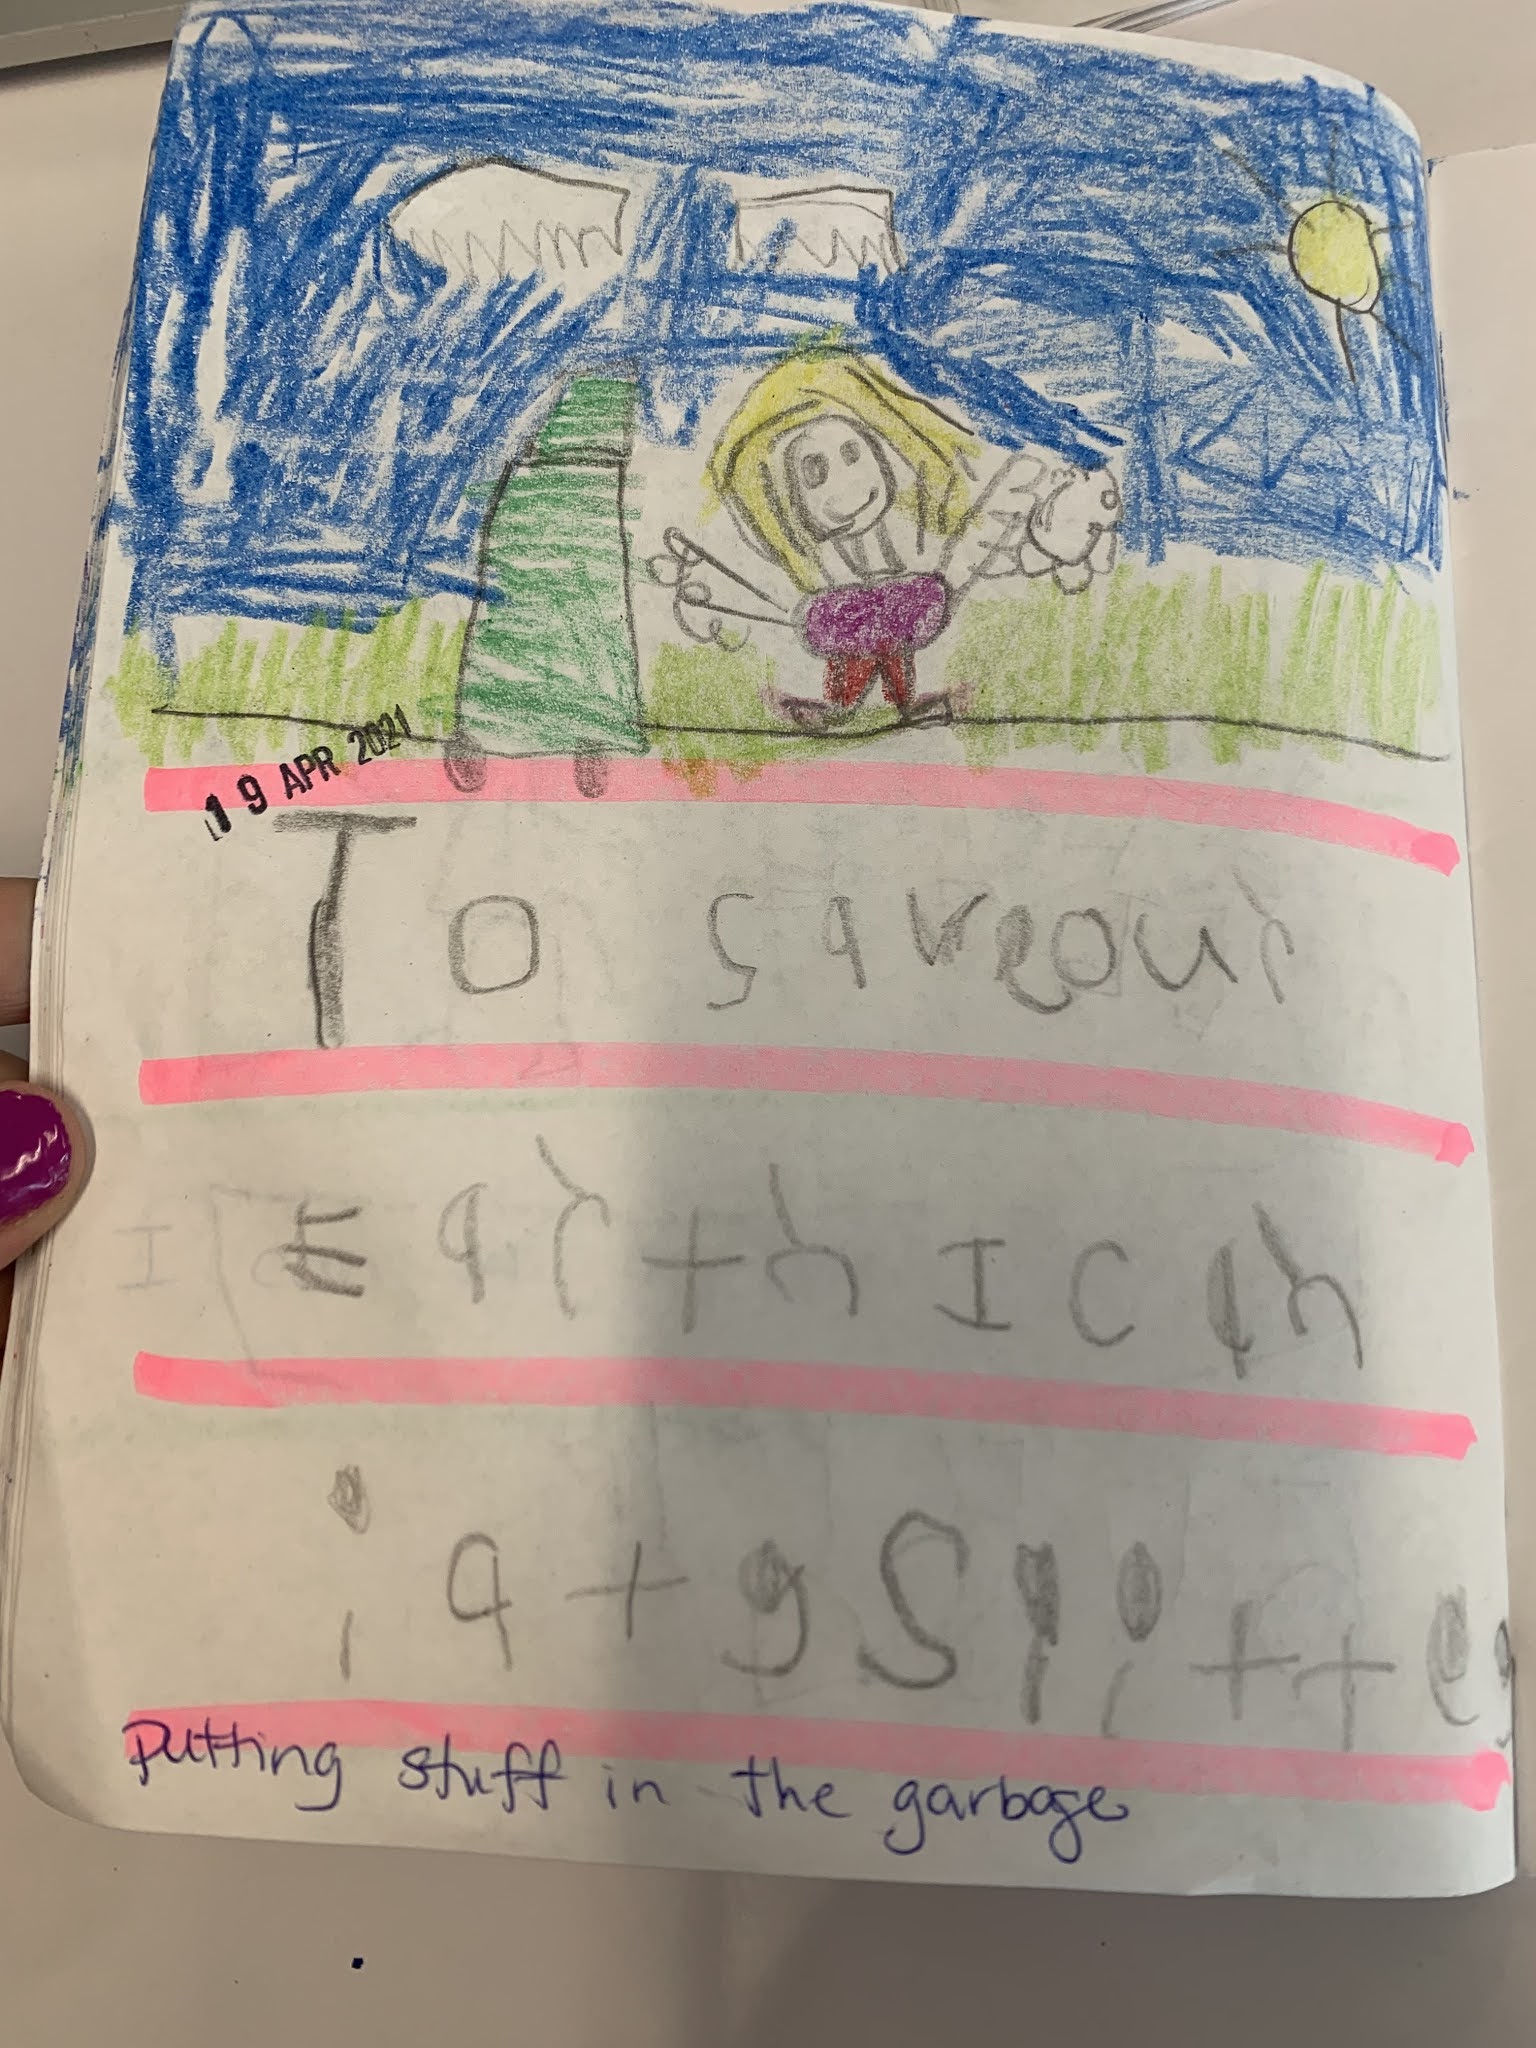 19 APR 2021
To saveour
Earth I can
Putting stuff in the garbage